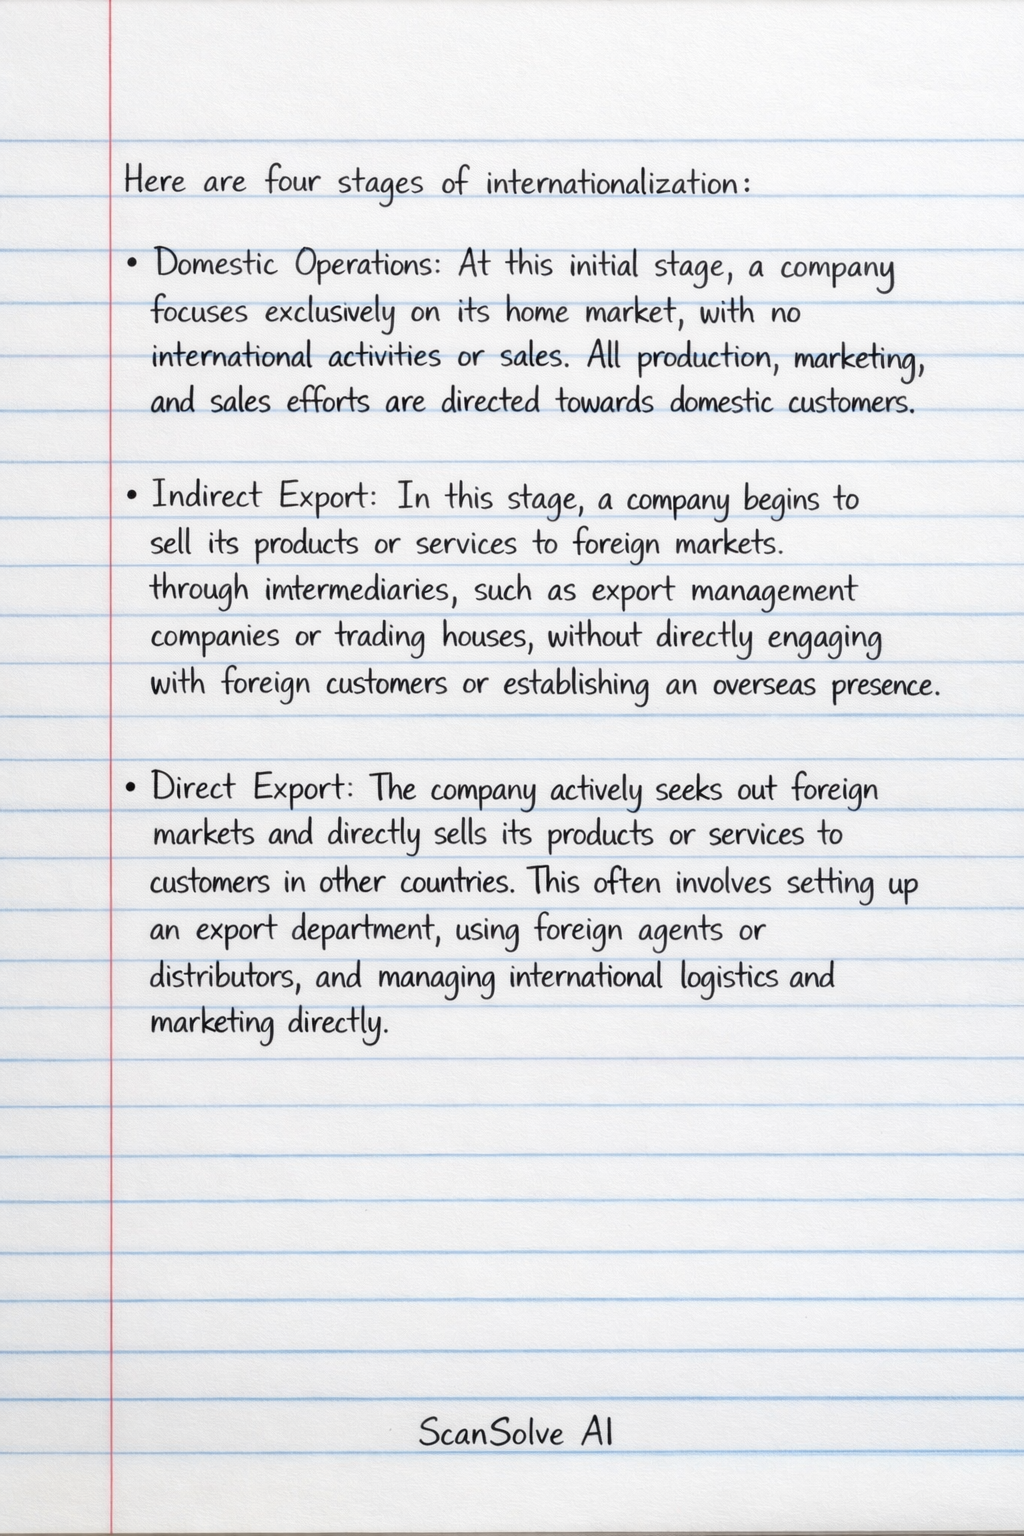 Here are four stages of internationalization:
• Domestic Operations: At this initial stage, a company
focuses exclusively on its home market, with no
international activities or sales. All production, marketing,
and sales efforts are directed towards domestic customers.
• Indirect Export: In this stage, a company begins to
sell its products or services to foreign markets.
through imtermediaries, such as export management
companies or trading houses, without directly engaging
with foreign customers or establishing an overseas presence.
• Direct Export: The company actively seeks out foreign
markets and directly sells its products or services to
customers in other countries. This often involves setting up
an export department, using foreign agents or
distributors, and managing international logistics and
marketing directly.
ScanSolve AI